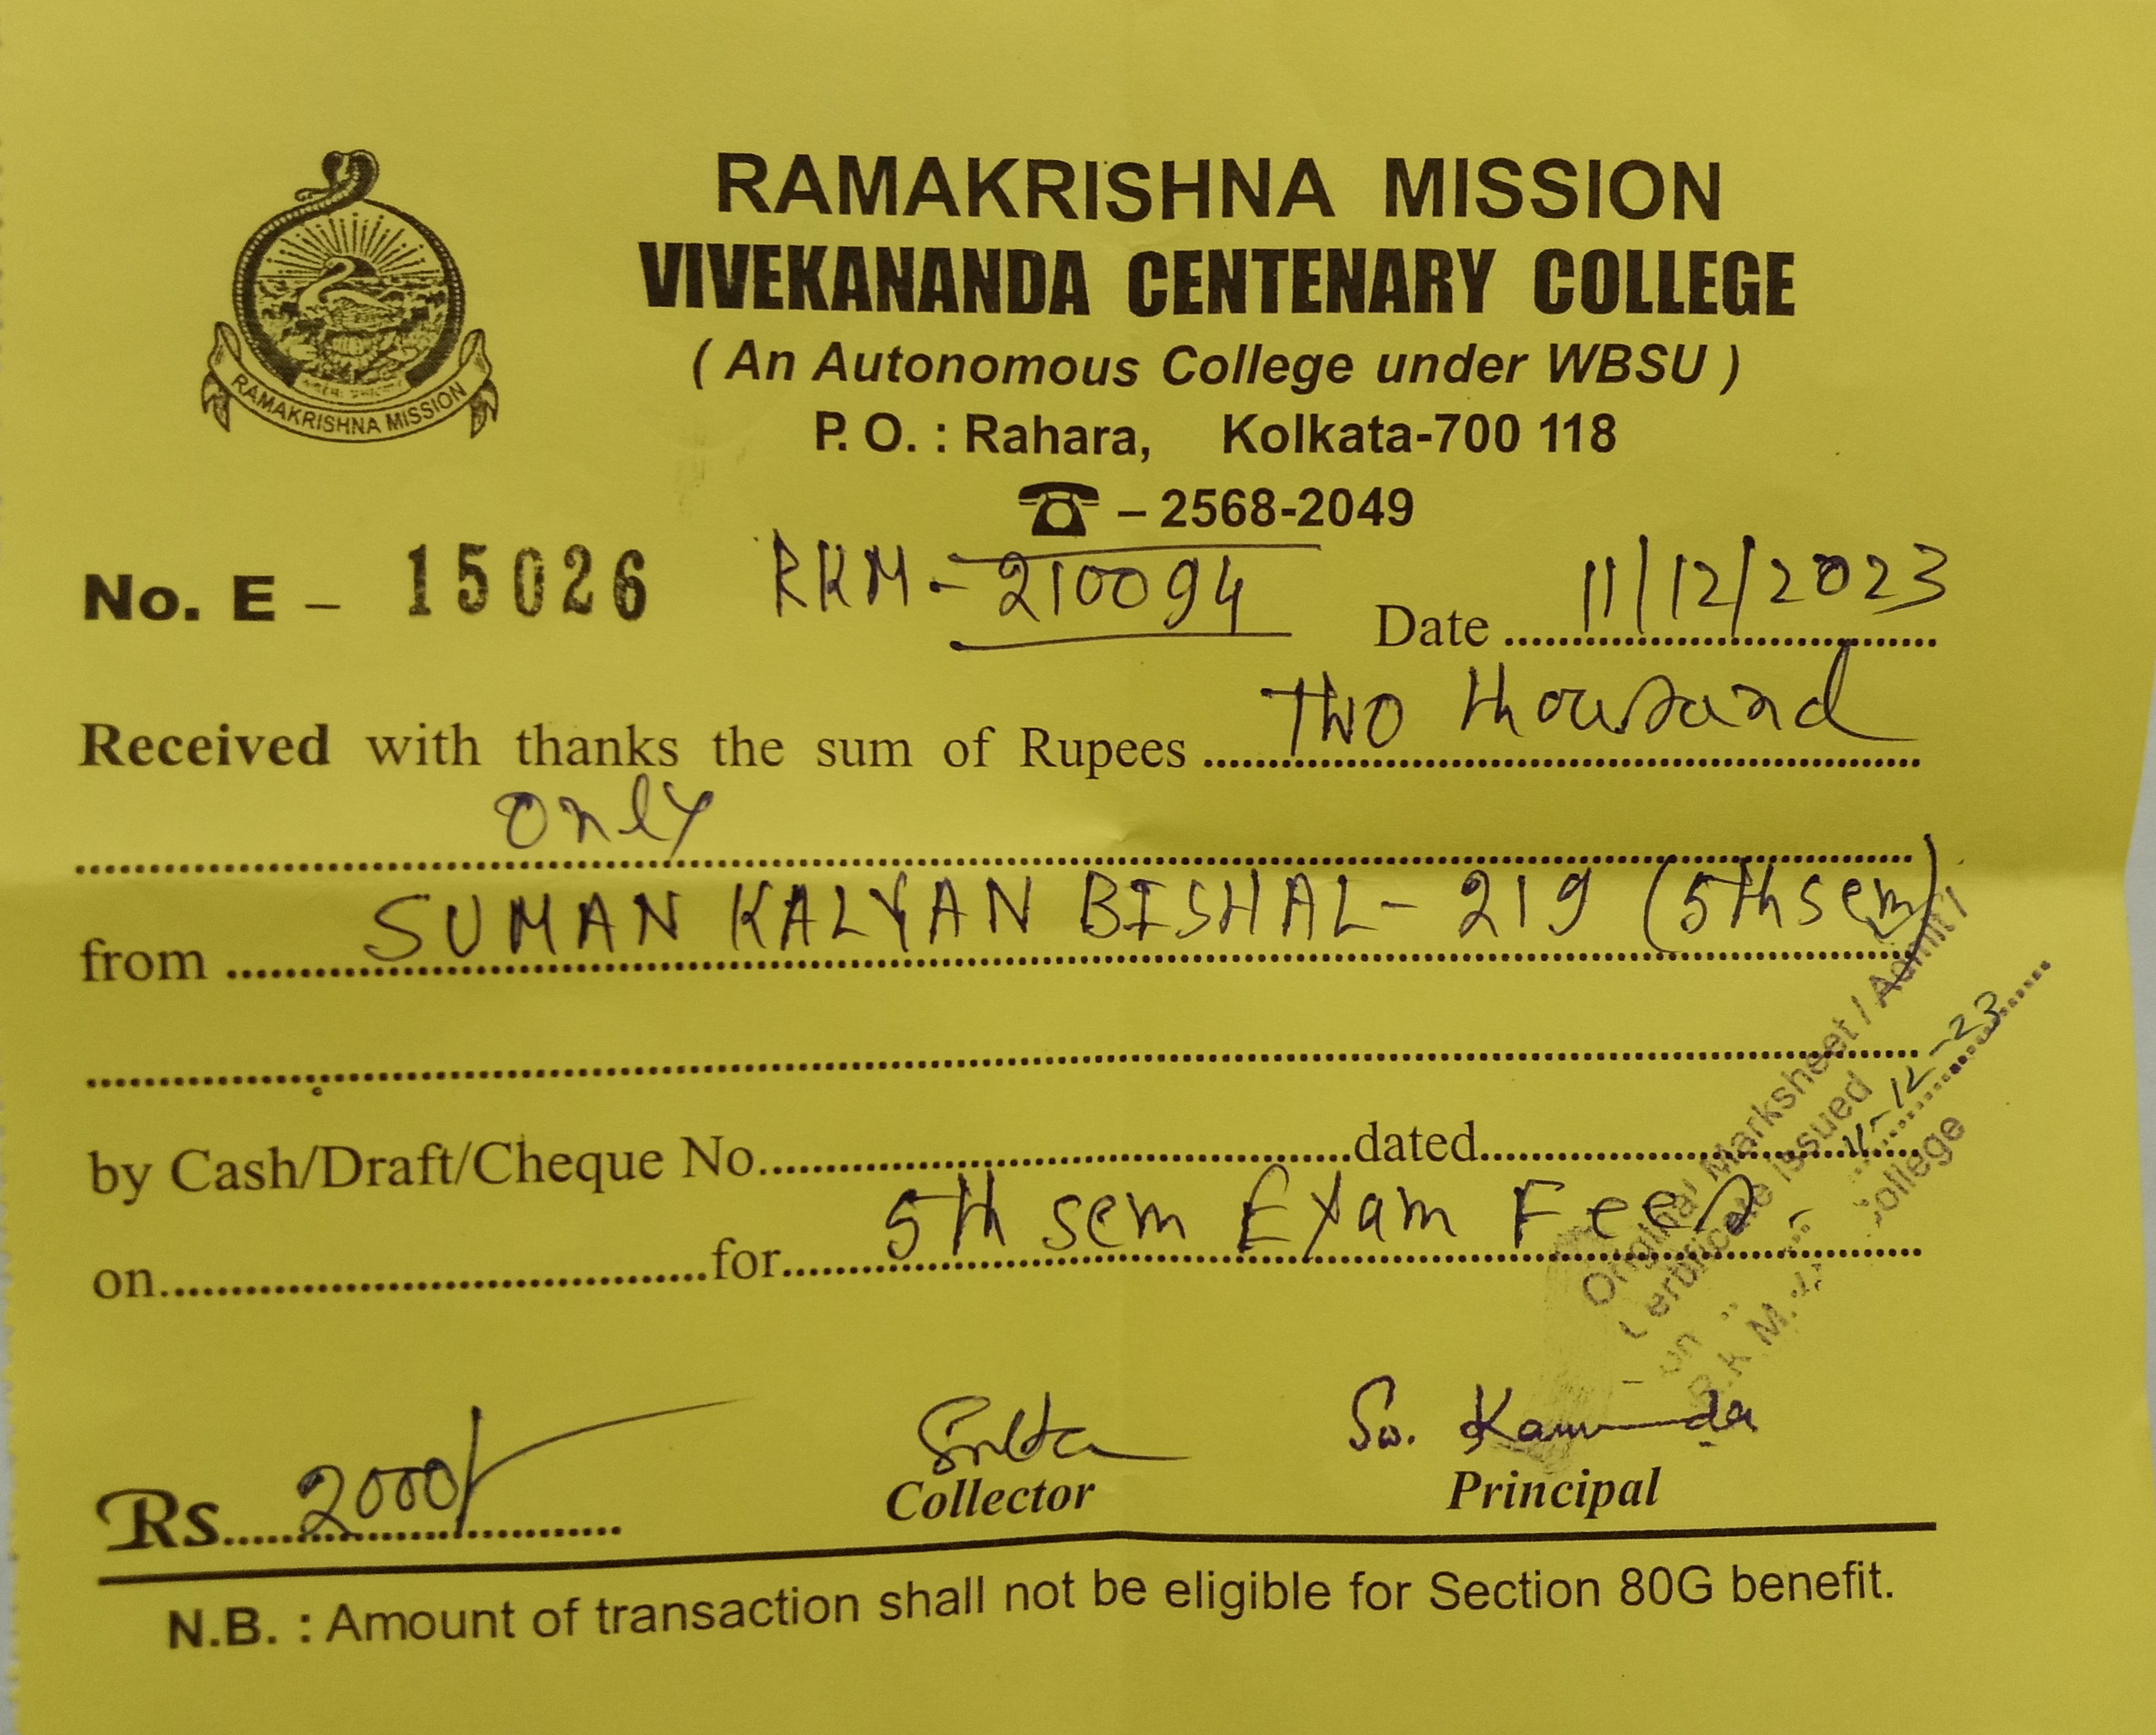 RAMAKRISHNA MISSION
VIVEKANANDA CENTENARY COLLEGE
( An Autonomous College under WBSU )
P. O. : Rahara, Kolkata-700 118
– 2568-2049
RAMAKRISHNA MISSION
No. E – 15026 RKM - 210094 Date 11/12/2023
Received with thanks the sum of Rupees Two thousand
only
from SUMAN KALYAN BISHAL - 219 (5th sem)
by Cash/Draft/Cheque No. dated
on for 5th sem Exam Fees.
Original Marksheet / Admit /
Certificate issued
on 11-12-23
R.K.M. College
Rs. 2000/-
Collector
Sw. Principal
N.B. : Amount of transaction shall not be eligible for Section 80G benefit.